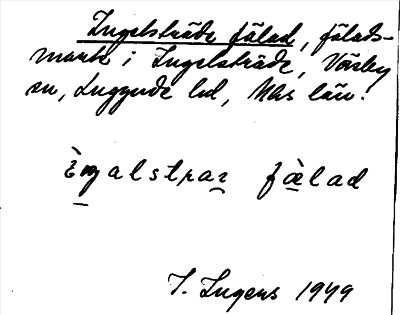 Ingelsträde fälad, fälads-
mark i Ingelsträde, Väsby
sn, Luggude hd, Mls län.
Èŋalstraz fàlad
I. Ingers 1949